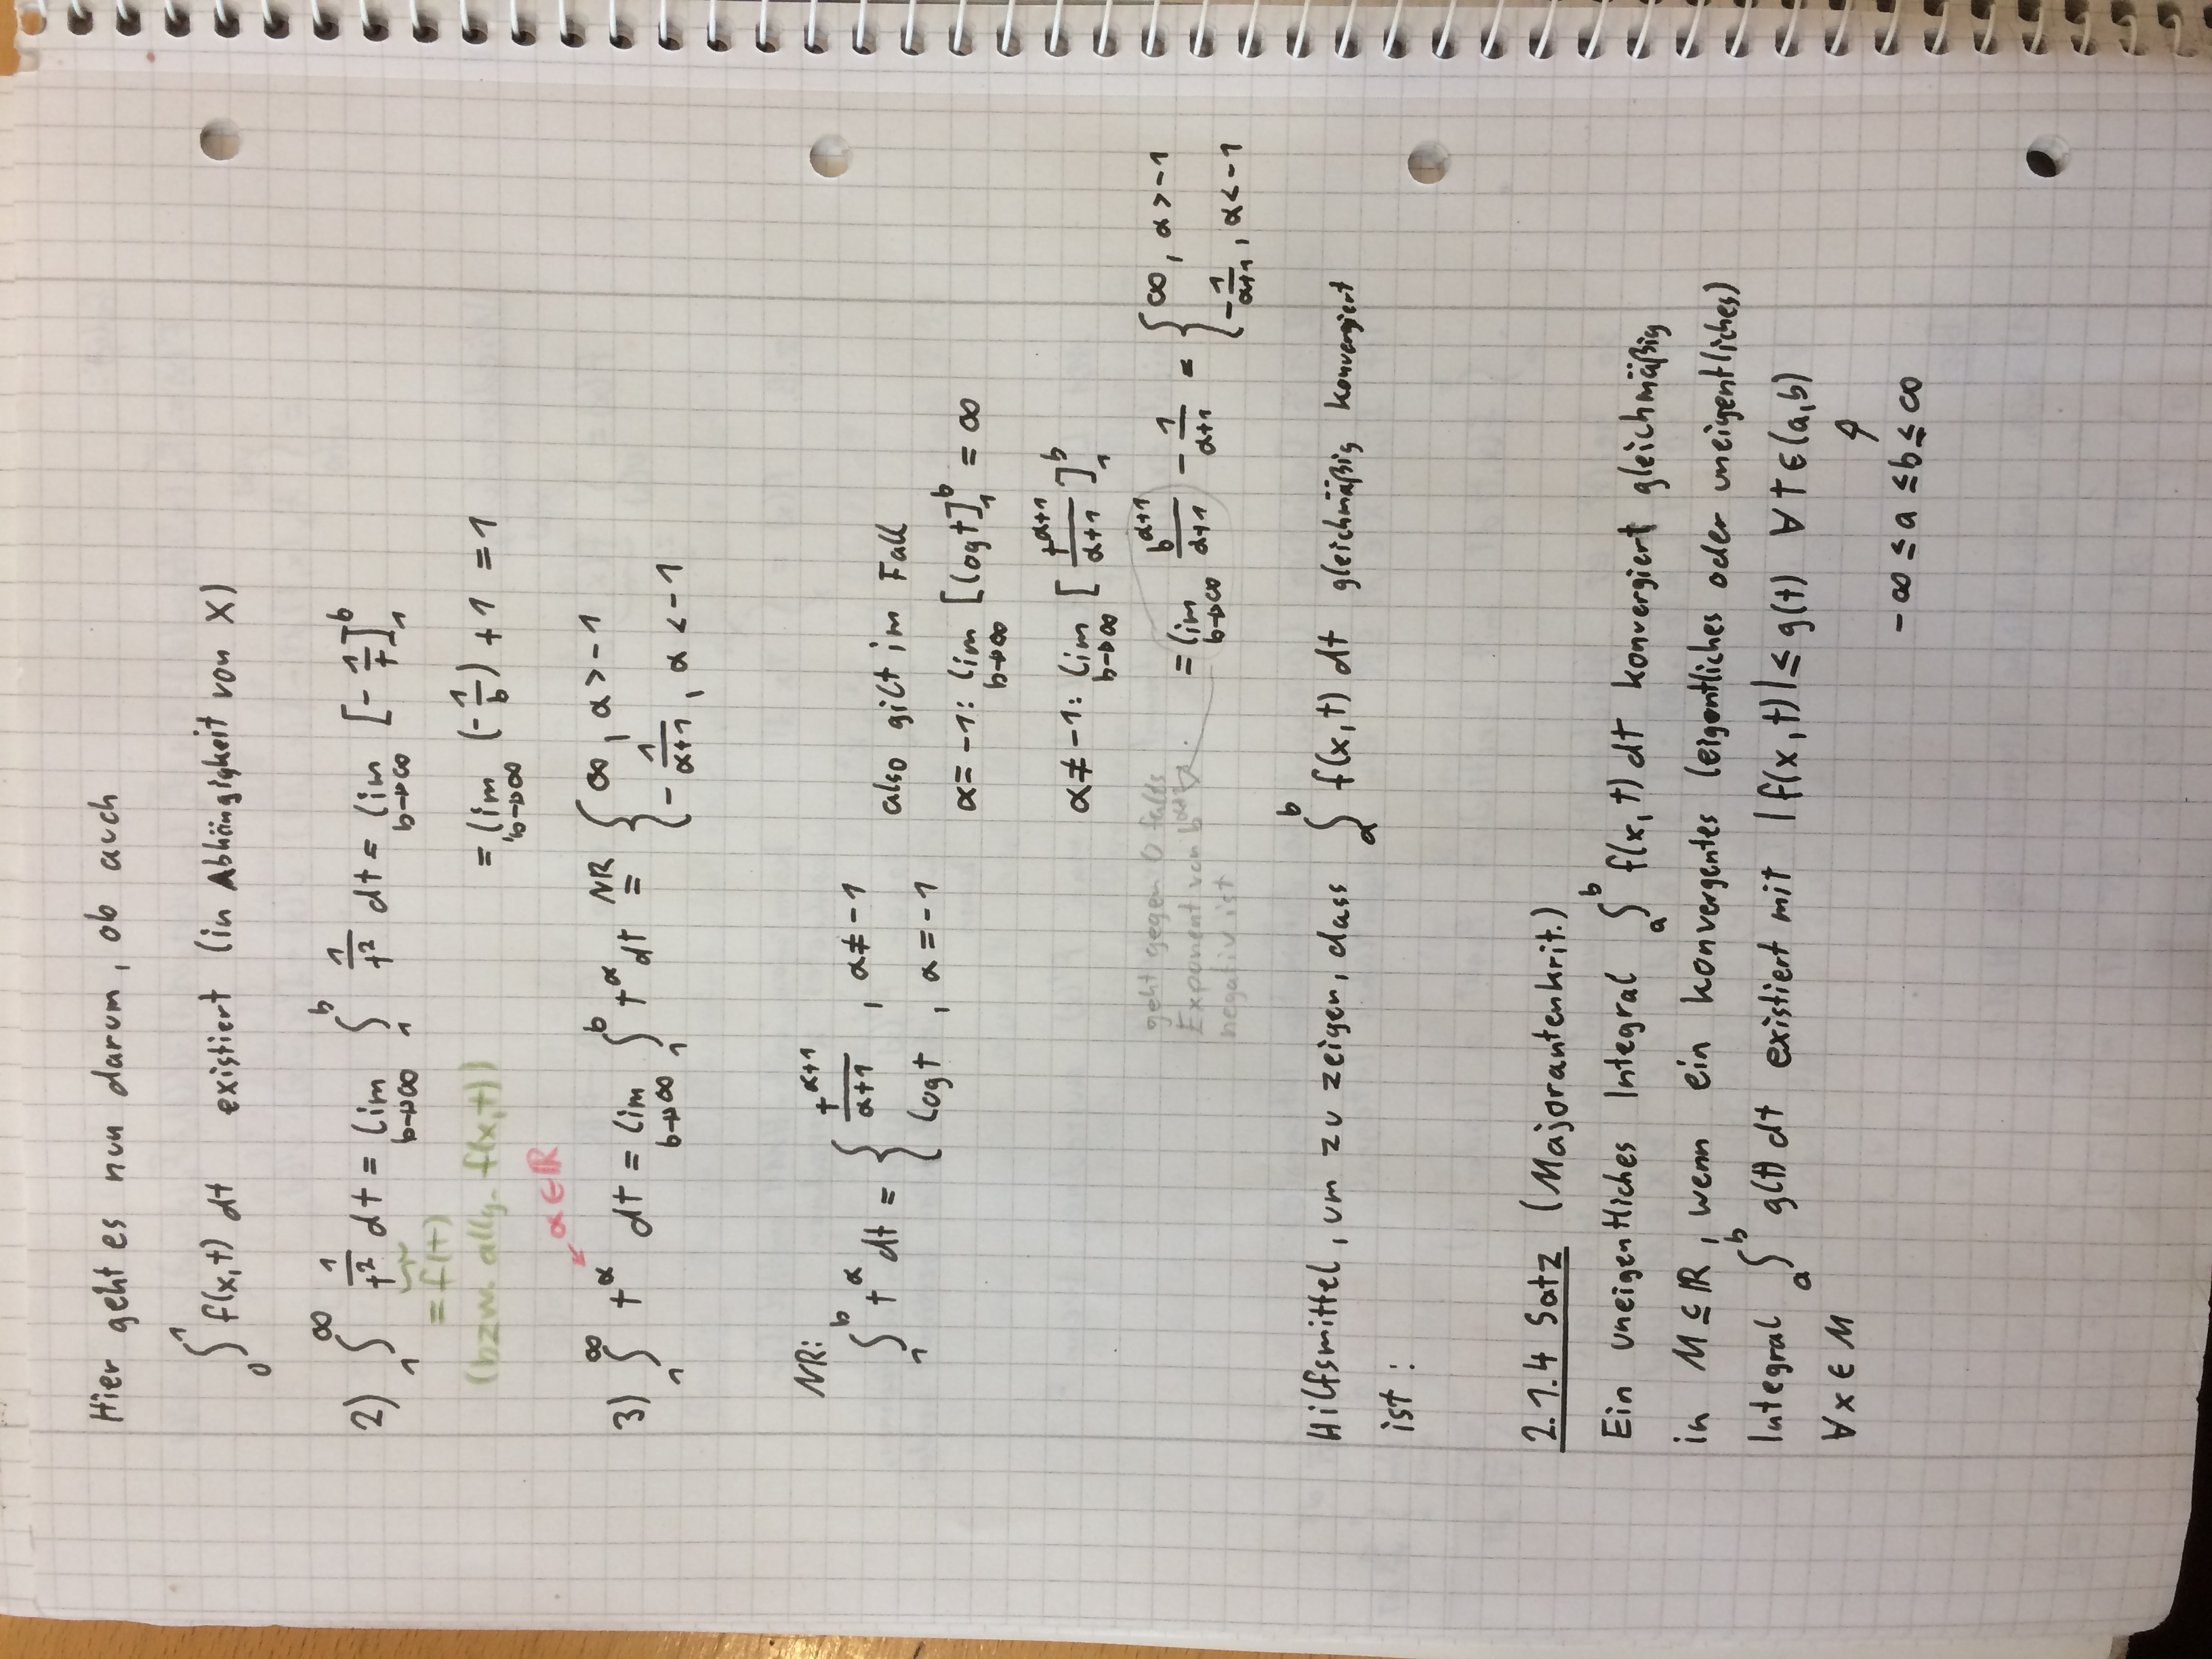 Hier geht es nun darum, ob auch
∫₀¹ f(x,t) dt existiert (in Abhängigkeit von X)
2) ∫₁^∞ 1/t² dt = lim_{b→∞} ∫₁^b 1/t² dt = lim_{b→∞} [-1/t]₁^b
= f(t)
(bzw. allg. f(x,t))
= lim_{b→∞} (-1/b) + 1 = 1
α ∈ ℝ
3) ∫₁^∞ t^α dt = lim_{b→∞} ∫₁^b t^α dt =^{NR} { ∞, α > -1
-1/(α+1), α < -1
NR:
∫₁^b t^α dt = { t^{α+1}/(α+1), α ≠ -1
log t, α = -1
also gilt im Fall
α = -1: lim_{b→∞} [log t]₁^b = ∞
α ≠ -1: lim_{b→∞} [t^{α+1}/(α+1)]₁^b
= lim_{b→∞} b^{α+1}/(α+1) - 1/(α+1) = { ∞, α > -1
-1/(α+1), α < -1
geht gegen 0 falls
Exponent von b^{α+1}
negativ ist
Hilfsmittel, um zu zeigen, dass ∫ₐ^b f(x,t) dt gleichmäßig konvergiert
ist:
2.1.4 Satz (Majorantenkrit.)
Ein uneigentliches Integral ∫ₐ^b f(x,t) dt konvergiert gleichmäßig
in M ⊆ ℝ, wenn ein konvergentes (eigentliches oder uneigentliches)
Integral ∫ₐ^b g(t) dt existiert mit |f(x,t)| ≤ g(t) ∀ t ∈ (a,b)
∀ x ∈ M
-∞ ≤ a ≤ b ≤ ∞